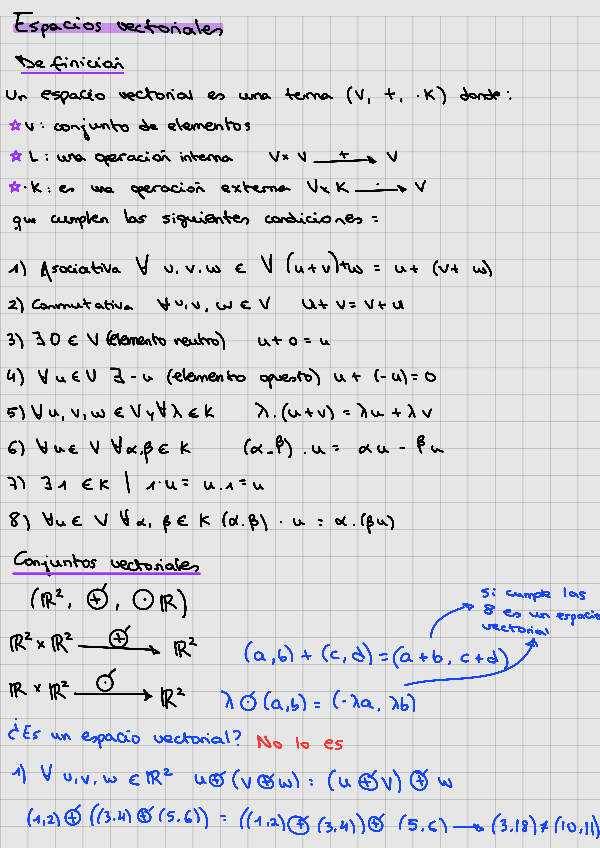 Espacios vectoriales
Definición
Un espacio vectorial es una terna (V, +, ·K) donde:
☆ V: conjunto de elementos
☆ L: una operación interna V×V —+→ V
☆ ·K: es una operación externa V×K —·→ V
que cumplen las siguientes condiciones =
1) Asociativa ∀ u,v,w ∈ V (u+v)+w = u+ (v+ w)
2) Conmutativa ∀u,v, w ∈ V u+ v = v+u
3) ∃ 0 ∈ V (elemento neutro) u+0 = u
4) ∀u∈V ∃ -u (elemento opuesto) u+ (-u)=0
5) ∀u,v,w ∈V y ∀λ∈K λ.(u+v) = λu + λv
6) ∀u∈ V ∀α,β ∈ K (α-β).u = αu - βu
7) ∃ 1 ∈K | 1·u = u.1 = u
8) ∀u∈ V ∀α, β ∈ K (α.β) · u = α.(βu)
Conjuntos vectoriales
(ℝ², ⊕, ⊙ℝ)
ℝ² × ℝ² —⊕→ ℝ²
ℝ × ℝ² —⊙→ ℝ²
si cumple las
8 es un espacio
vectorial
(a,b) + (c,d) = (a+b, c+d)
λ⊙(a,b) = (-λa, λb)
¿Es un espacio vectorial? No lo es
1) ∀ u,v,w ∈ℝ² u⊕(v⊕w) = (u⊕v)⊕ w
(1,2)⊕((3,4)⊕(5,6)) = ((1,2)⊕(3,4))⊕ (5,6) → (3,18) ≠ (10,11)